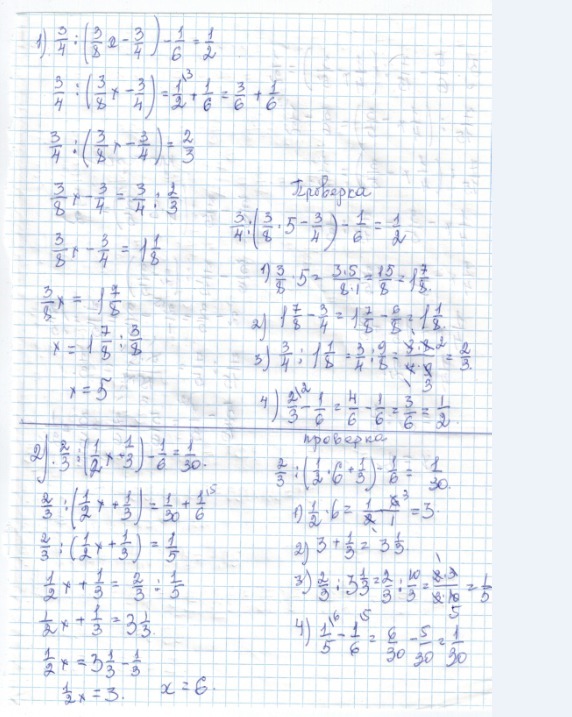 1) 3/4 : (3/8 x − 3/4) − 1/6 = 1/2
3/4 : (3/8 x − 3/4) = 1/2 \3 + 1/6 = 3/6 + 1/6
3/4 : (3/8 x − 3/4) = 2/3
3/8 x − 3/4 = 3/4 : 2/3
3/8 x − 3/4 = 1 1/8
3/8 x = 1 7/8
x = 1 7/8 : 3/8
x = 5
Проверка
3/4 : (3/8 · 5 − 3/4) − 1/6 = 1/2
1) 3/8 · 5 = 3·5/8·1 = 15/8 = 1 7/8
2) 1 7/8 − 3/4 = 1 7/8 − 6/8 = 1 1/8
3) 3/4 : 1 1/8 = 3/4 : 9/8 = 3·8 2/4·9 3 = 2/3
4) 2/3 \2 − 1/6 = 4/6 − 1/6 = 3/6 = 1/2.
2) 2/3 : (1/2 x + 1/3) − 1/6 = 1/30.
2/3 : (1/2 x + 1/3) = 1/30 + 1/6 \5
2/3 : (1/2 x + 1/3) = 1/5
1/2 x + 1/3 = 2/3 : 1/5
1/2 x + 1/3 = 3 1/3
1/2 x = 3 1/3 − 1/3
1/2 x = 3. x = 6.
проверка
2/3 : (1/2 · 6 + 1/3) − 1/6 = 1/30.
1) 1/2 · 6 = 1·6 3/2·1 = 3.
2) 3 + 1/3 = 3 1/3.
3) 2/3 : 3 1/3 = 2/3 : 10/3 = 2·3/3·10 5 = 1/5
4) 1/5 \6 − 1/6 \5 = 6/30 − 5/30 = 1/30